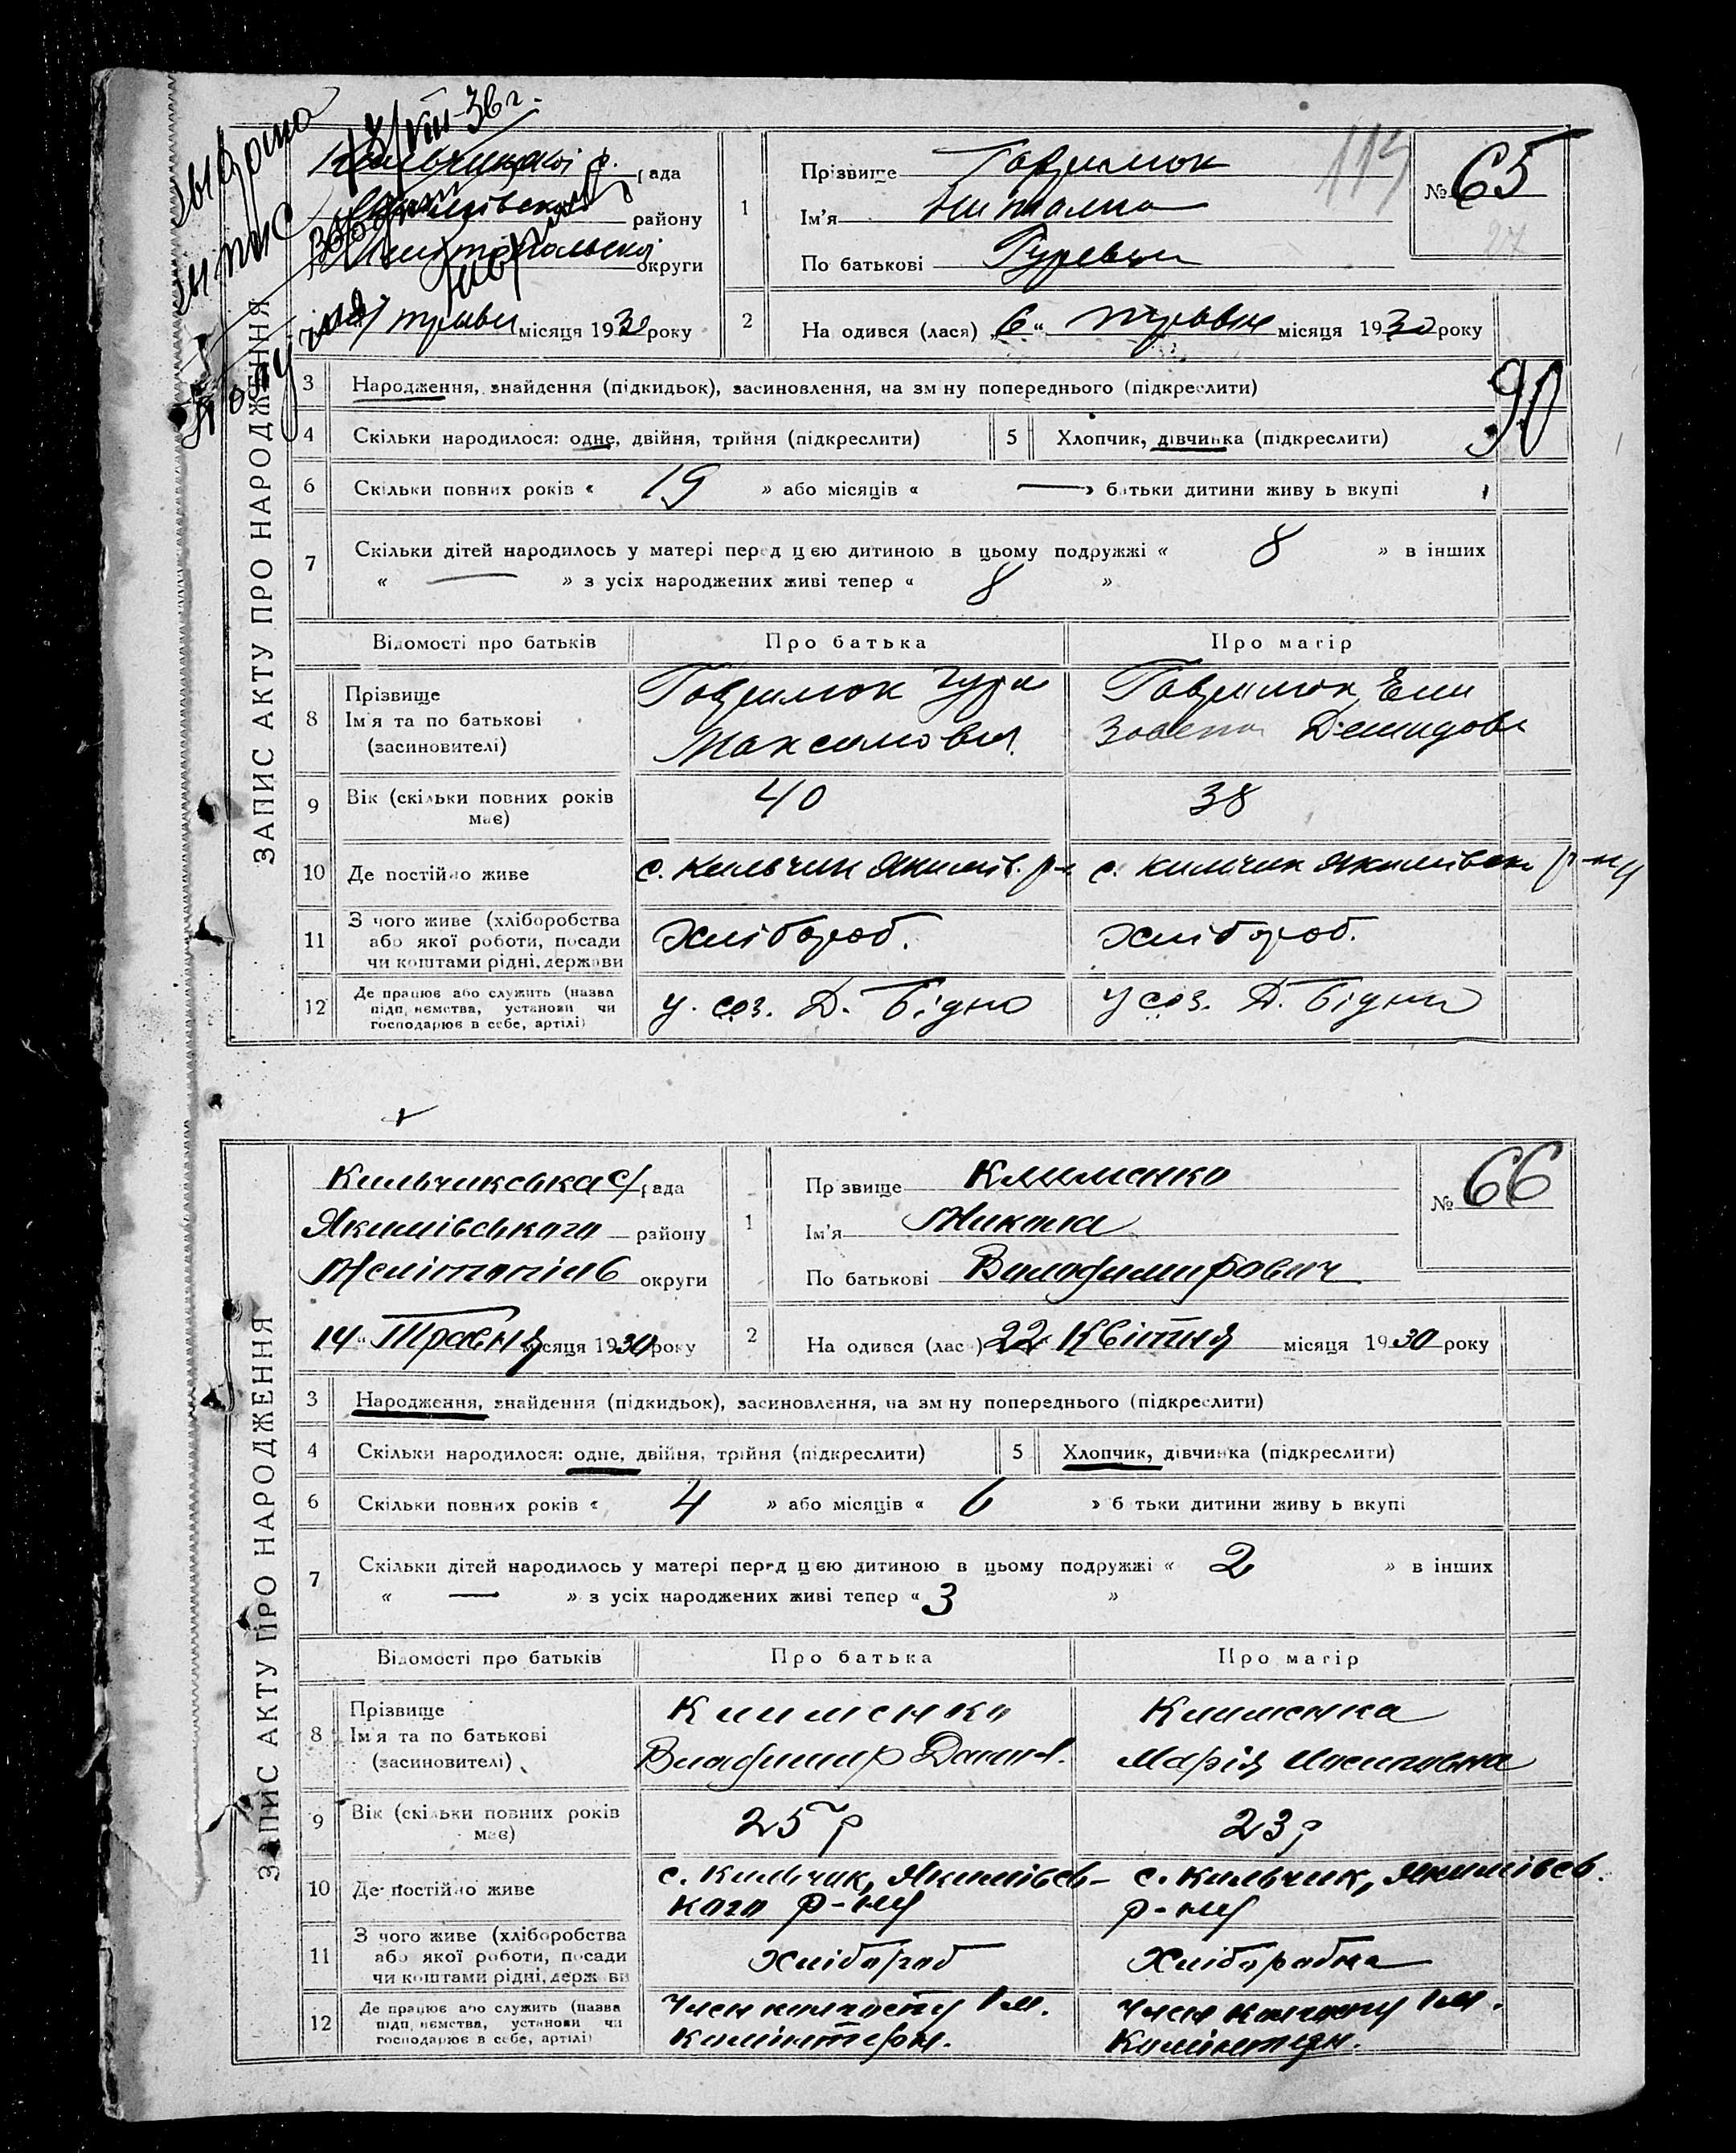 17/VIII-36 г.
рада
району
округи
місяця 1930 року
ЗАПИС АКТУ ПРО НАРОДЖЕННЯ
1
Прізвище Гаврилюк
Ім'я Наталка
По батькові Гурьевна
114
№ 65
27
2
На одився (лася) „6“ травня місяця 1930 року
3 Народження, знайдення (підкидьок), засиновлення, на зм ну попереднього (підкреслити)
90
4 Скільки народилося: одне, двійня, трійня (підкреслити) 5 Хлопчик, дівчинка (підкреслити)
6 Скільки повних років « 19 » або місяців « — » батьки дитини живу ь вкупі
7 Скільки дітей народилось у матері перед цею дитиною в цьому подружжі « 8 » в інших
« — » з усіх народжених живі тепер « 8 »
Відомості про батьків Про батька Про матір
8 Прізвище
Ім'я та по батькові
(засиновителі)
Гаврилюк Гура
Максимович
Гаврилюк Ели
завета Демидовн
9 Вік (скільки повних років
має)
40 38
10 Де постійно живе
с. Кильчик Якимів. р-
с. Кильчик Якимівськ р-ну
11 З чого живе (хліборобства
або якої роботи, посади
чи коштами рідні, держави
Хлібороб. Хлібороб.
12 Де працює або служить (назва
підп иємства, установи чи
господарює в себе, артілі)
у. соз. Д. Бідно у соз. Д. Бідно
ЗАПИС АКТУ ПРО НАРОДЖЕННЯ
Кильчикська с/рада
Якимівського району
Мелітопільс округи
14 “ Травня місяця 1930 року
1
Пр звище Клименко
Ім'я Микола
По батькові Володимирович
№ 66
2
На одився (лас ) 22 Квітня місяця 1930 року
3 Народження, знайдення (підкидьок), засиновлення, на зм ну попереднього (підкреслити)
4 Скільки народилося: одне, двійня, трійня (підкреслити) 5 Хлопчик, дівчинка (підкреслити)
6 Скільки повних років « 4 » або місяців « 6 » б тьки дитини живу ь вкупі
7 Скільки дітей народилось у матері перед цею дитиною в цьому подружжі « 2 » в інших
« — » з усіх народжених живі тепер « 3 »
Відомості про батьків Про батька Про матір
8 Прізвище
Ім'я та по батькові
(засиновителі)
Клименко
Владимир Данил.
Клименка
Марія
9 Вік (скільки повних років
має)
25 р 23 р
10 Де постійно живе
с. Кильчик, Якимівсь-
кого р-ну
с. Кильчик, Якимівсь.
р-ну
11 З чого живе (хліборобства
або якої роботи, посади
чи коштами рідні, держ ви
Хлібороб Хліборобка
12 Де працює або служить (назва
підп иємства, установи чи
господарює в себе, артілі)
Член колгоспу Ім.
Комінтерн.
Член колгоспу Ім.
Комінтерн.